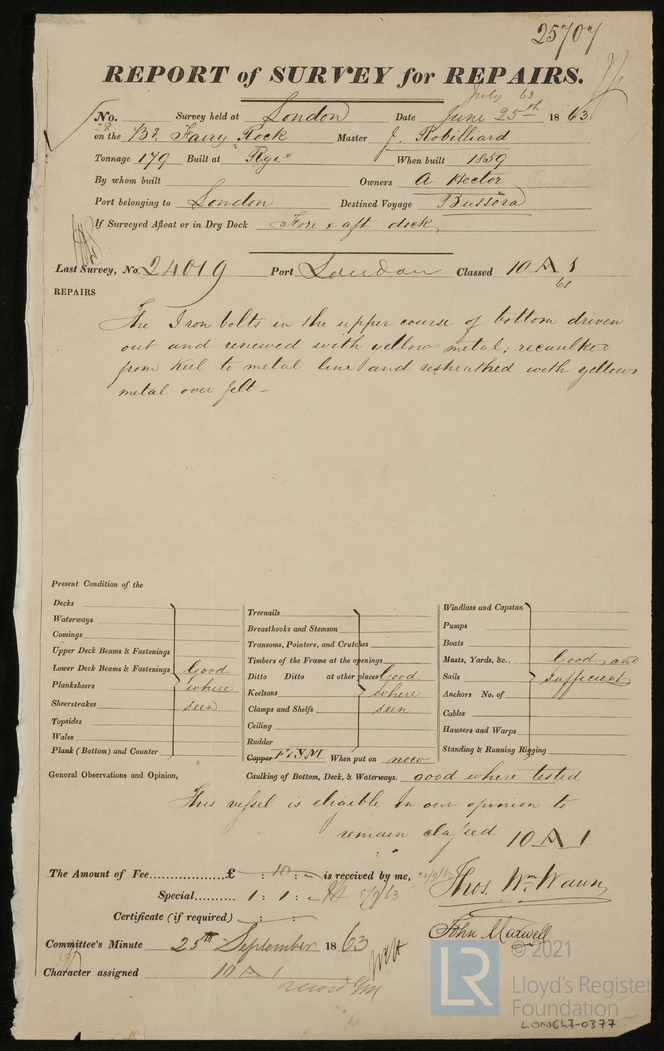 25707
REPORT of SURVEY for REPAIRS.
July 63
No. Survey held at London Date June 25th 1863
28
on the Fairy Rock Master J. Robilliard
Tonnage 179 Built at Rye When built 1859
By whom built Owners A Hector
Port belonging to London Destined Voyage Bussora
If Surveyed Afloat or in Dry Dock Fore & aft dock
Last Survey, No. 24019 Port London Classed 10 A 1
61
REPAIRS
The Iron bolts in the upper course of bottom driven
out and renewed with yellow metal; recaulked
from keel to metal line and resheathed with yellow
metal over felt -
Present Condition of the
Decks
Waterways
Comings
Upper Deck Beams & Fastenings
Lower Deck Beams & Fastenings Good
Planksheers where
Sheerstrakes seen
Topsides
Wales
Plank (Bottom) and Counter
Treenails
Breasthooks and Stemson
Transoms, Pointers, and Crutches
Timbers of the Frame at the openings
Ditto Ditto at other places Good
Keelsons where
Clamps and Shelfs seen
Ceiling
Rudder
Copper F&YM When put on new
Windlass and Capstan
Pumps
Boats
Masts, Yards, &c. Good and
Sails sufficient
Anchors No. of
Cables
Hawsers and Warps
Standing & Running Rigging
General Observations and Opinion, Caulking of Bottom, Deck, & Waterways. good where tested
This vessel is eligible in our opinion to
remain classed 10 A 1
The Amount of Fee £ : 10 : - is received by me, 
Special 1 : 1 : - 63
Thos. Wm. Wawn
Certificate (if required) : :
John Maxwell
Committee's Minute 25th September 1863
Character assigned 10 A 1
© 2021
LR Lloyd's Register
Foundation
LON647-0377